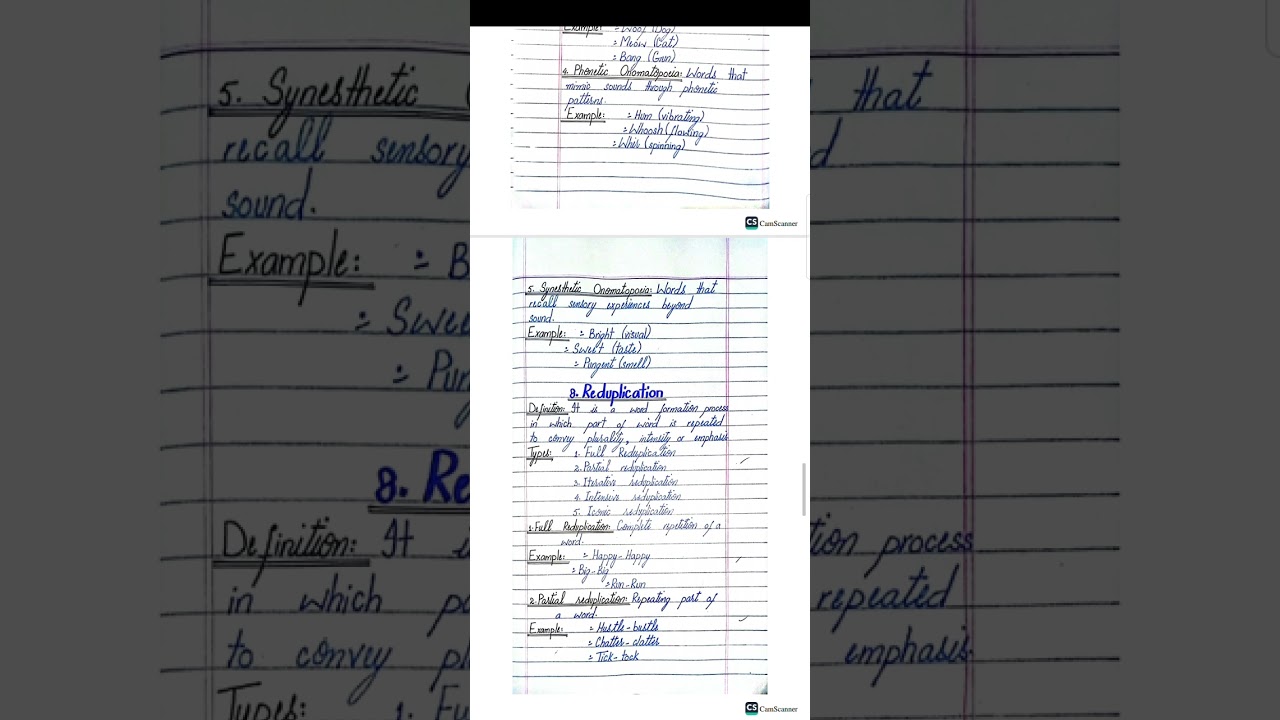 Example: = Woof (Dog)
= Meow (Cat)
= Bang (Gun)
4. Phonetic Onomatopoeia: Words that
mimic sounds through phonetic
patterns.
Example: = Hum (vibrating)
= Whoosh (flowing)
= Whir (spinning)
CS CamScanner
5. Synesthetic Onomatopoeia: Words that
recall sensory experiences beyond
sound.
Example: = Bright (visual)
= Sweet (taste)
= Pungent (smell)
8. Reduplication
Definition: It is a word formation process
in which part of word is repeated
to convey plurality, intensity or emphasis
Types: 1. Full Reduplication
2. Partial reduplication
3. Iterative reduplication
4. Intensive reduplication
5. Iconic reduplication
1. Full Reduplication: Complete repetition of a
word.
Example: = Happy-Happy
= Big-Big
= Run-Run
2. Partial reduplication: Repeating part of
a word.
Example: = Hustle-bustle
= Chatter-clatter
= Tick-tock
CS CamScanner
5. Synesthetic
recall sensory
sound.
Example: = B
= Swee
= Pun
8. Re
Definition: It i
in which p
to convey pl
Types: 1.
that
d
tion process
repeated
emphasis